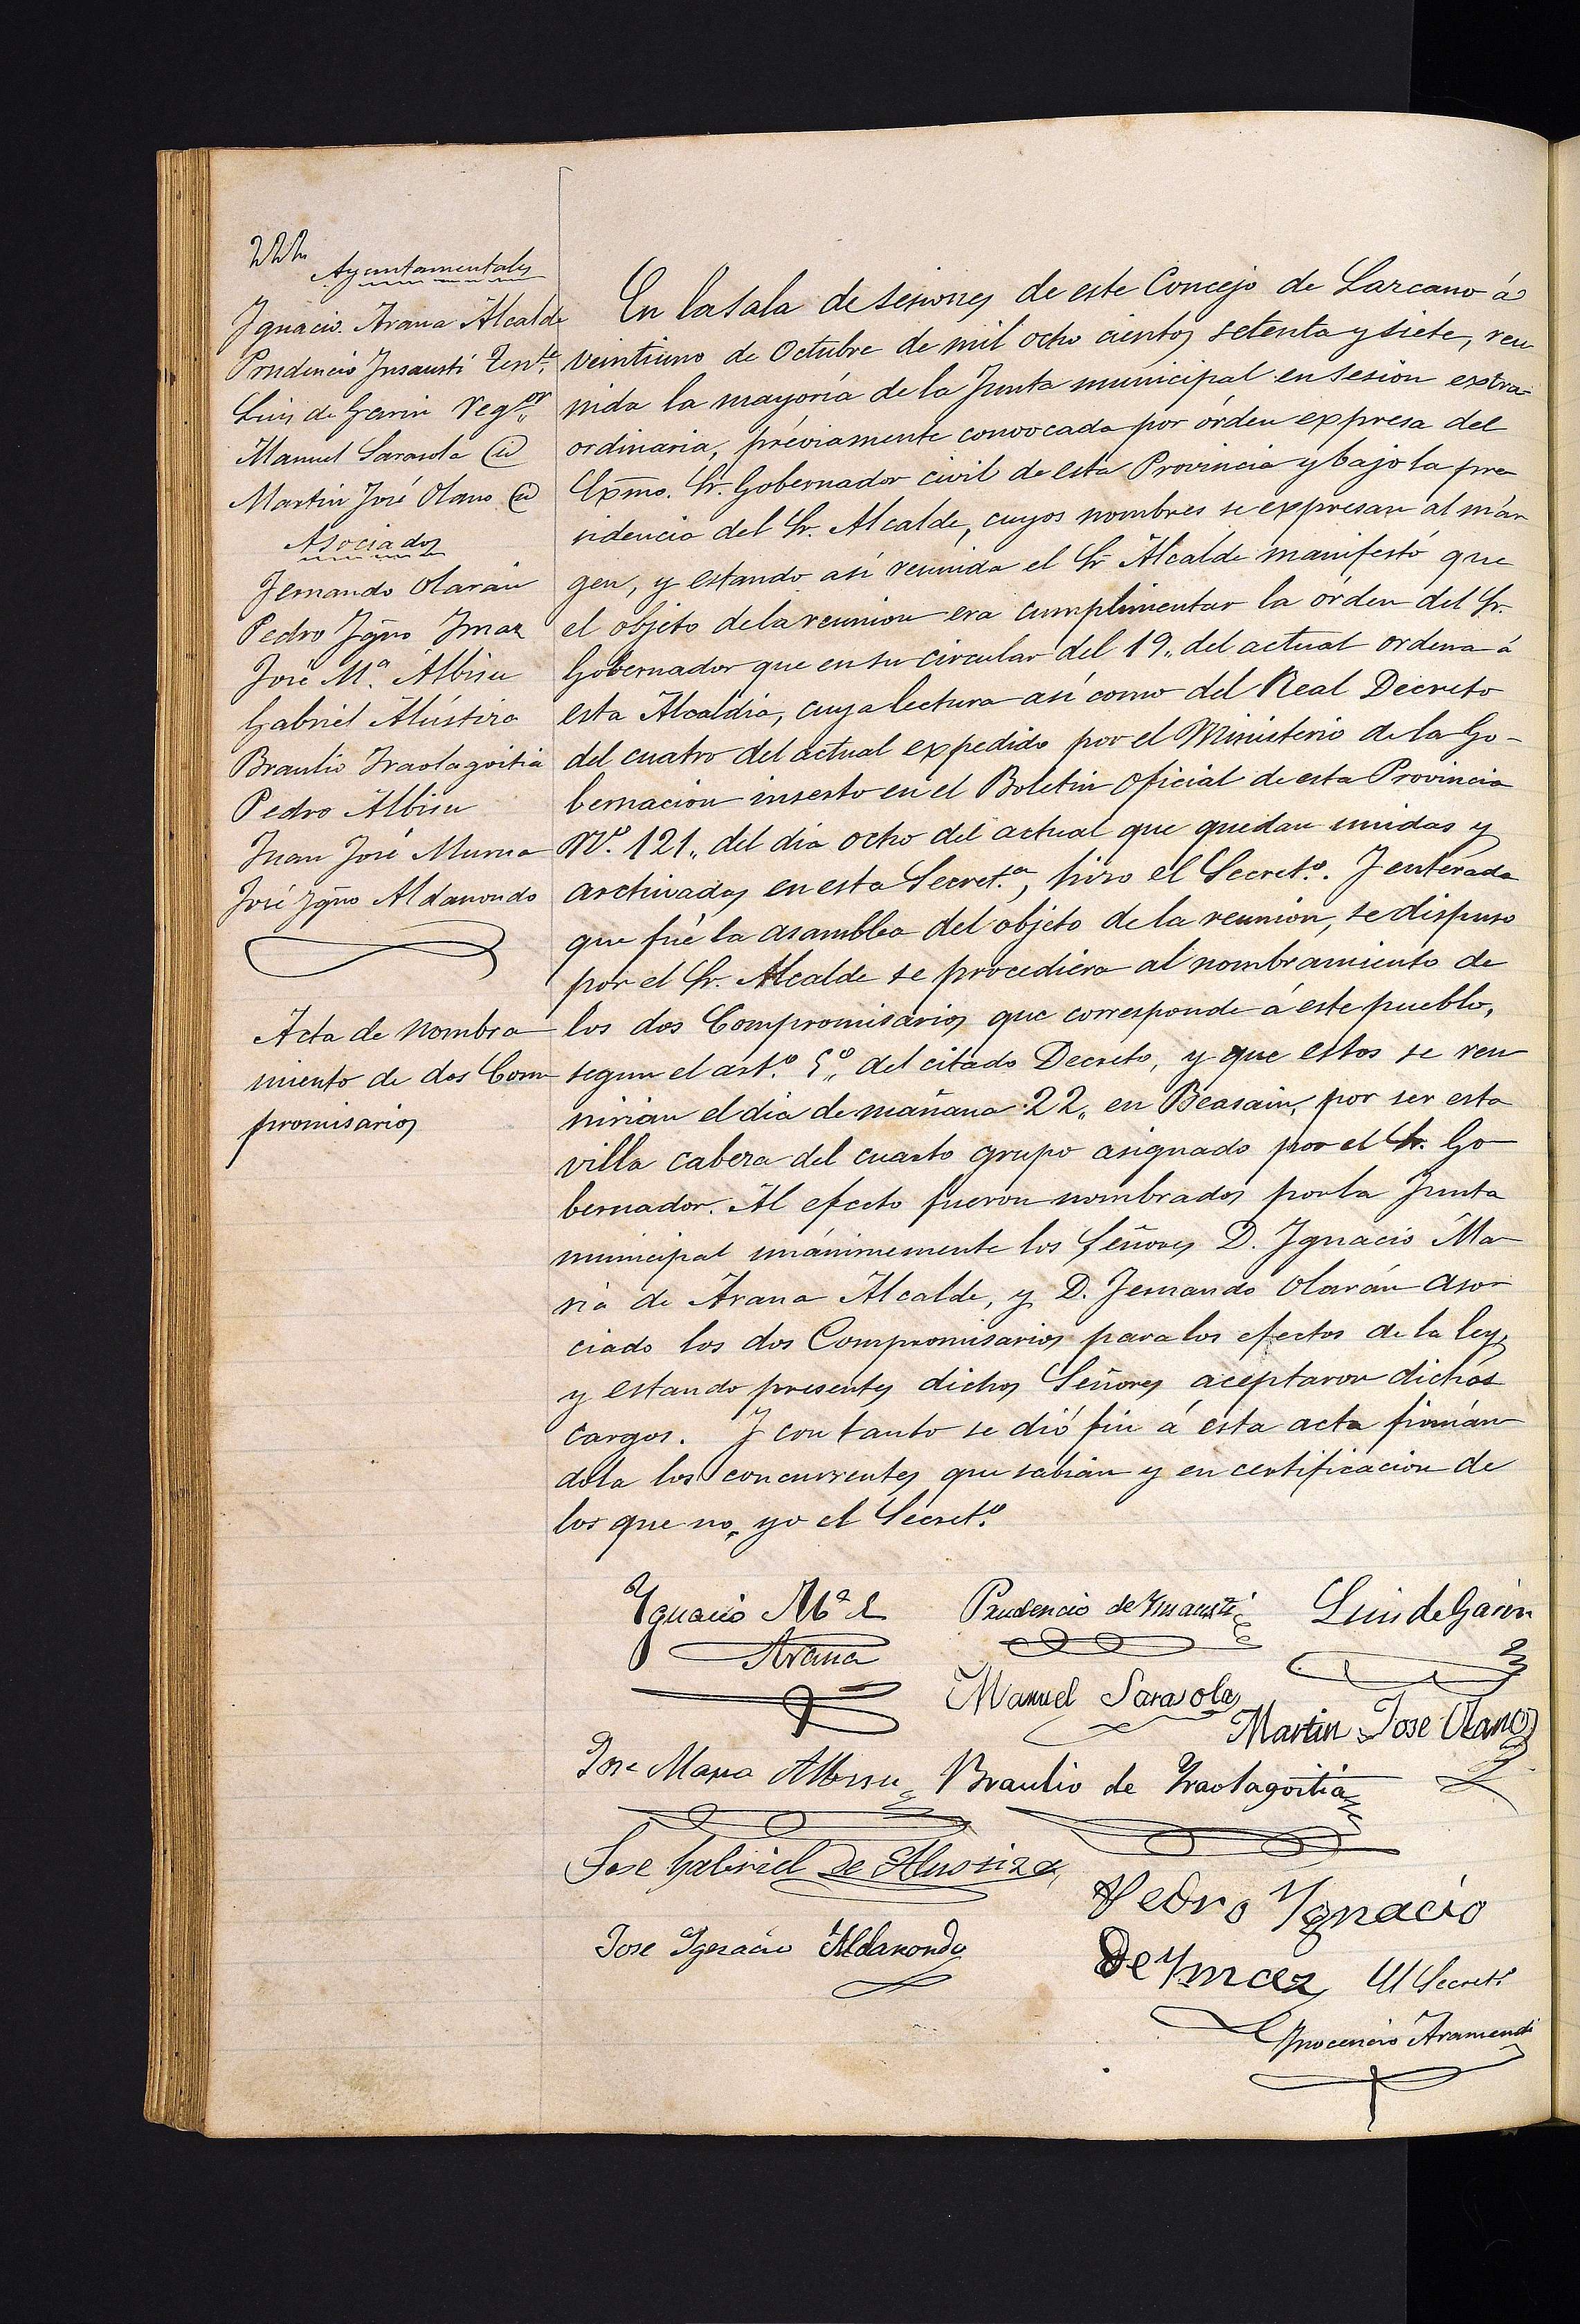 Ayuntamentales
Ignacio Arana Alcalde
Prudencio Insausti Tente.
Luis de Garin Regor.
Manuel Sarasola id
Martin José Olano id
Asociados
Fernando Olarán
Pedro Igño Imaz
José Ma. Albisu
Gabriel Alústiza
Braulio Iraolagoitia
Pedro Albisu
Juan José Murua
José Igño Aldanondo
Acta de nombra
miento de dos Com
promisarios
En la sala de sesiones de este Concejo de Lazcano á
veintiuno de Octubre de mil ocho cientos setenta y siete, reu
nida la mayoría de la Junta municipal en sesion extra-
ordinaria, préviamente convocada por órden expresa del
Exmo. Sr. Gobernador civil de esta Provincia y bajo la pre
sidencia del Sr. Alcalde, cuyos nombres se expresan al már
gen, y estando así reunida el Sr Alcalde manifestó que
el objeto de la reunion era cumplimentar la órden del Sr.
Gobernador que en su circular del 19,, del actual ordena á
esta Alcaldía, cuya lectura así como del Real Decreto
del cuatro del actual expedido por el Ministerio de la Go-
bernacion inserto en el Boletin oficial de esta Provincia
No. 121,, del dia ocho del actual que quedan unidas y
archivadas en esta Secret.a, hizo el Secret.o. Y enterada
que fué la asamblea del objeto de la reunion, se dispuso
por el Sr. Alcalde se procediera al nombramiento de
los dos Compromisarios que corresponde á este pueblo,
segun el art.o 5.o,, del citado Decreto, y que estos se reu
nirian el dia de mañana 22,, en Beasain, por ser esta
villa cabeza del cuarto grupo asignado por el Sr. Go
bernador. Al efecto fueron nombrados por la Junta
municipal unánimemente los Señores D. Ignacio Ma
ria de Arana Alcalde, y D. Fernando Olarán aso-
ciado los dos Compromisarios para los efectos de la ley,
y estando presentes dichos Señores aceptaron dichos
cargos. Y con tanto se dió fin á esta acta firmán
dola los concurrentes que sabian y en certificacion de
los que no, yo el Secret.o
Ygnacio Ma. d Prudencio de Ynsausti Luis de Garin
Arana
Manuel Sarasola
Martin Jose Olano
Jose Maria Albisu Braulio de Yraolagoitia
Jose Gabriel de Alustiza
Pedro Ygnacio
Jose Ygnacio Aldanondo
De Ymaz El Secret.o
Ynocencio Aramendi